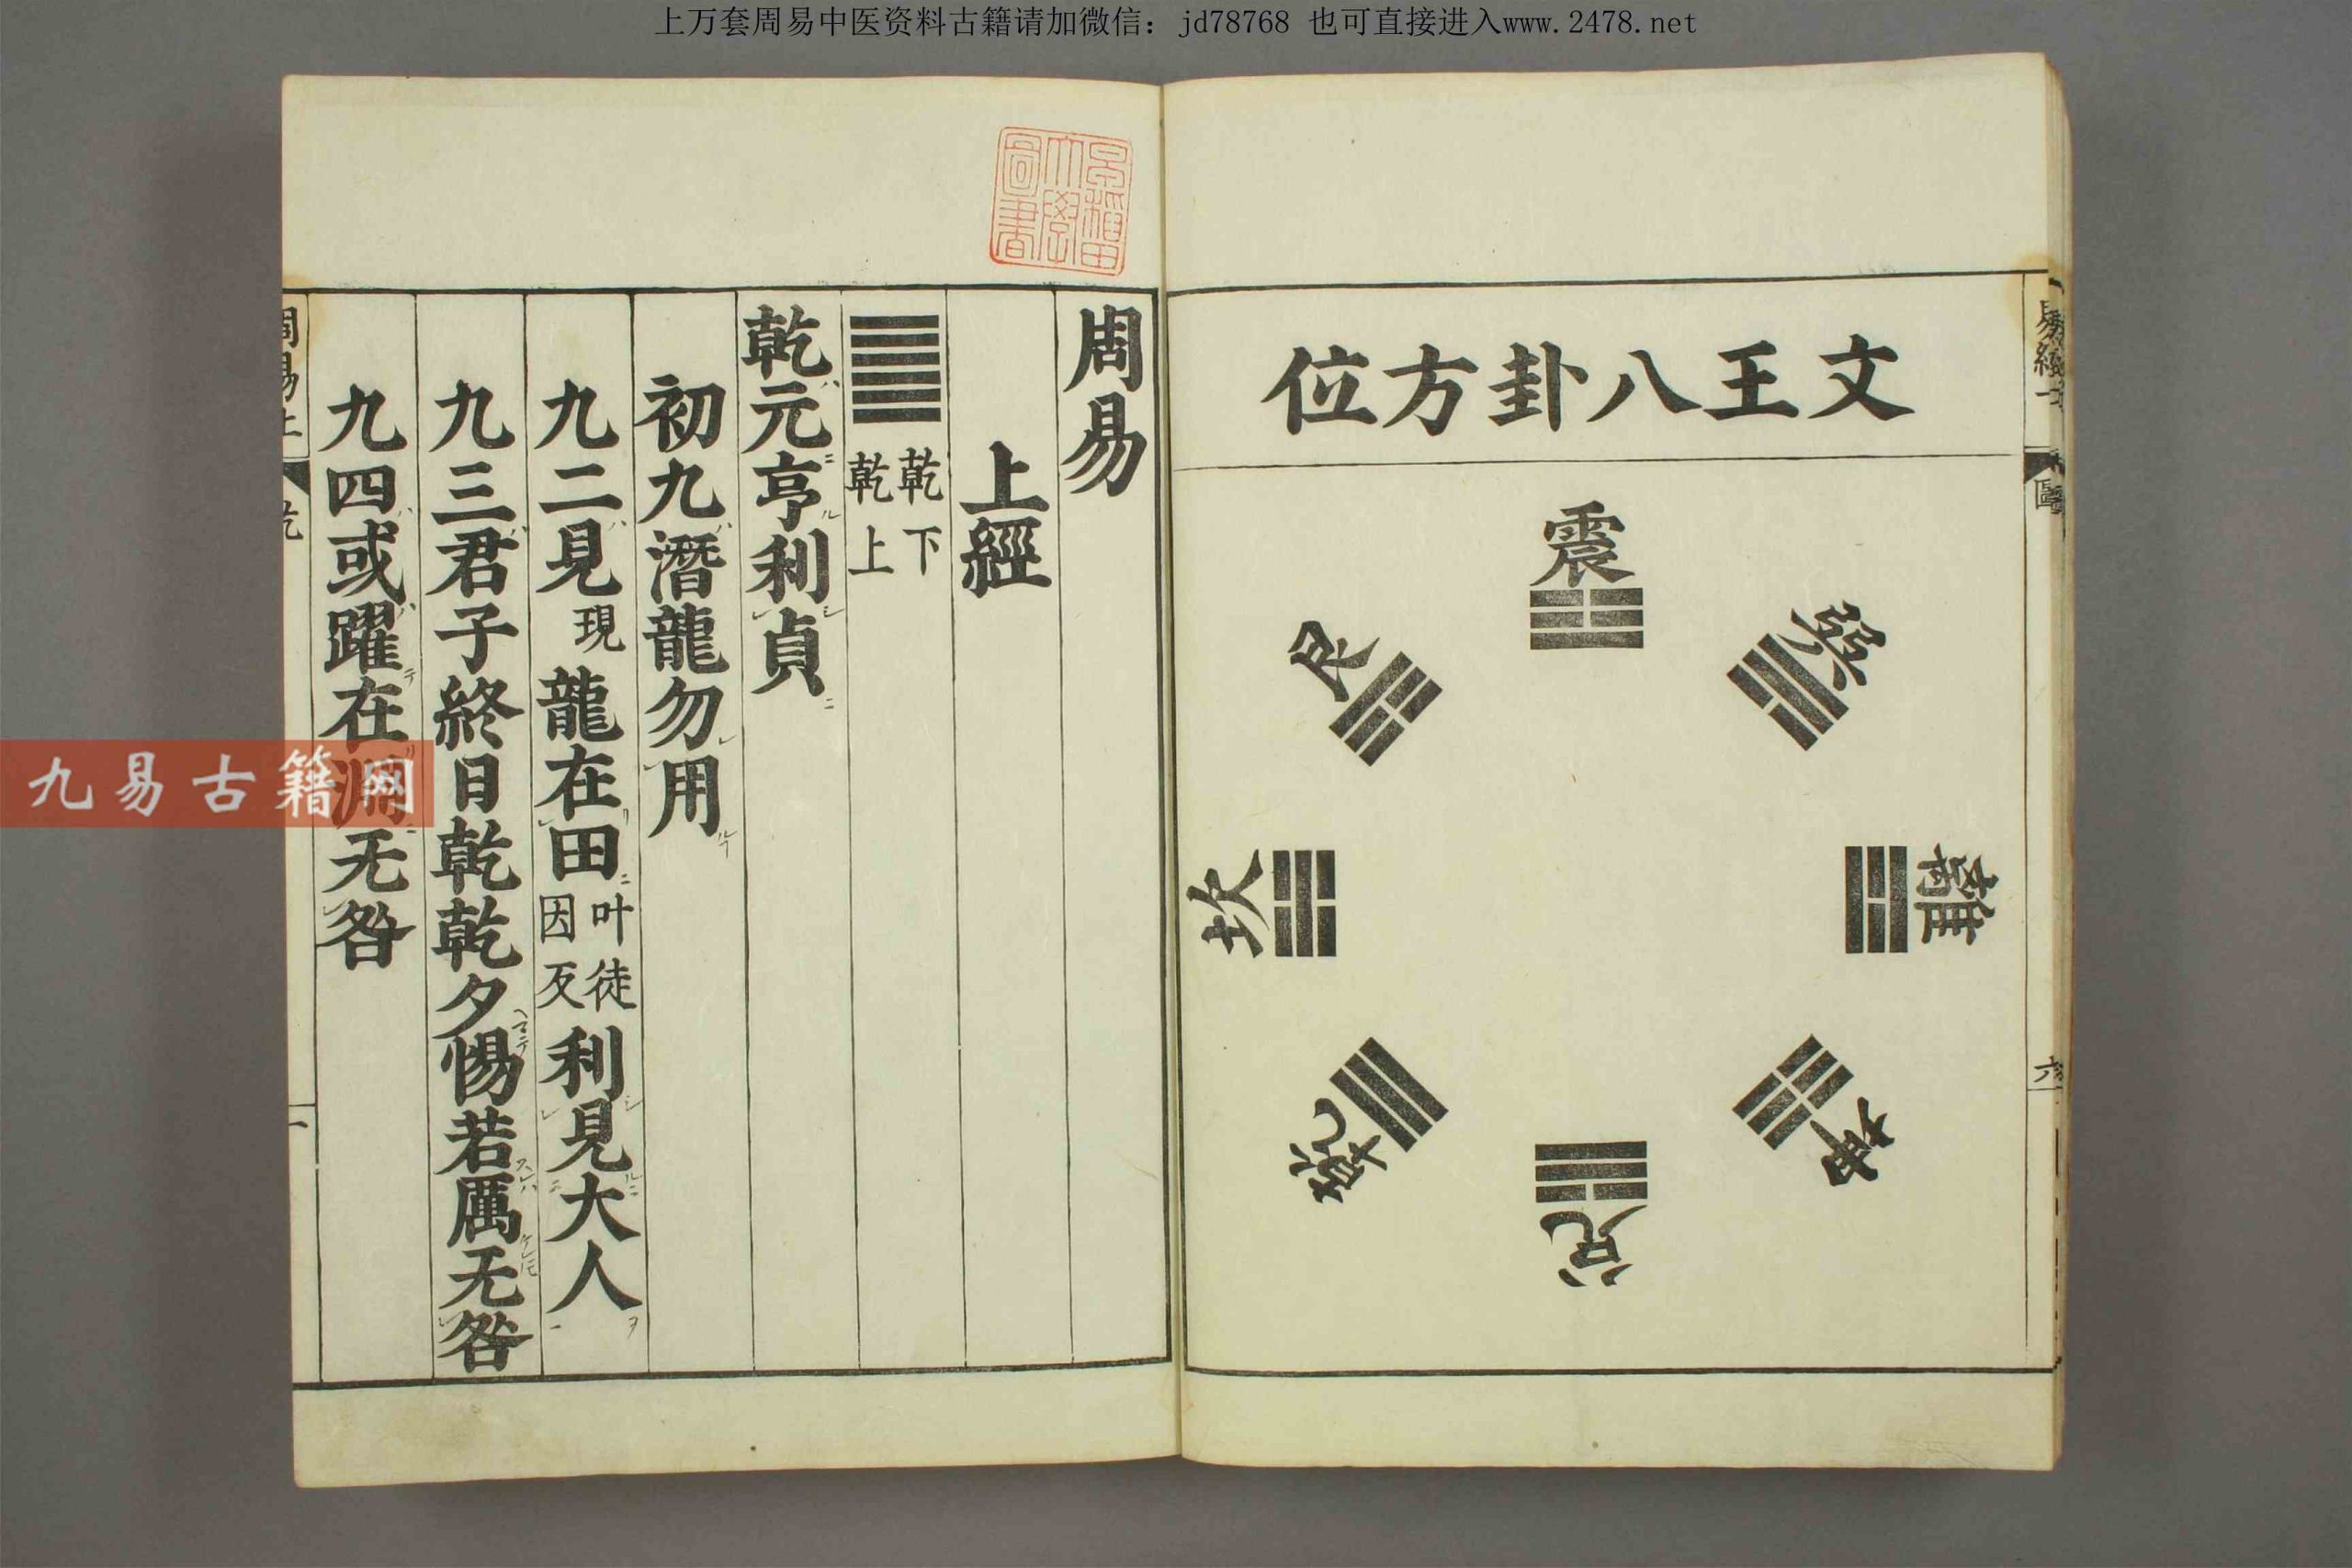 上万套周易中医资料古籍请加微信：jd78768 也可直接进入www.2478.net
文王八卦方位
震
巽
離
坤
兌
乾
坎
艮
六
周易
上經
乾下
乾上
乾元亨利貞
初九潛龍勿用
九二見現龍在田叶徒因反利見大人
九三君子終日乾乾夕惕若厲无咎
九四或躍在淵无咎
周易上
乾
一
早稲田大學圖書
九易古籍网